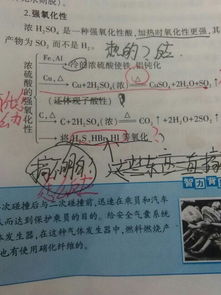 2.强氧化性
浓 H₂SO₄ 是一种强氧化性酸，加热时氧化性更强，其
产物为 SO₂ 而不是 H₂。
热的了
浓硫酸的强氧化性
Fe、Al
冷的浓硫酸使铁、铝钝化
Cu,△
Cu+2H₂SO₄(浓) △ CuSO₄+2H₂O+SO₂↑
(还体现了酸性)
C,△
C+2H₂SO₄(浓) △ CO₂↑+2H₂O+2SO₂↑
将 H₂S、HBr、HI 等氧化
这些东西一直搞
智力背
次碰撞后与二次碰撞前,迅速在乘员和汽车
从而达到保护乘员的目的。给安全气囊系统
体发生器,在这种气体发生器中,燃料燃烧产
也有使用硝化纤维的。